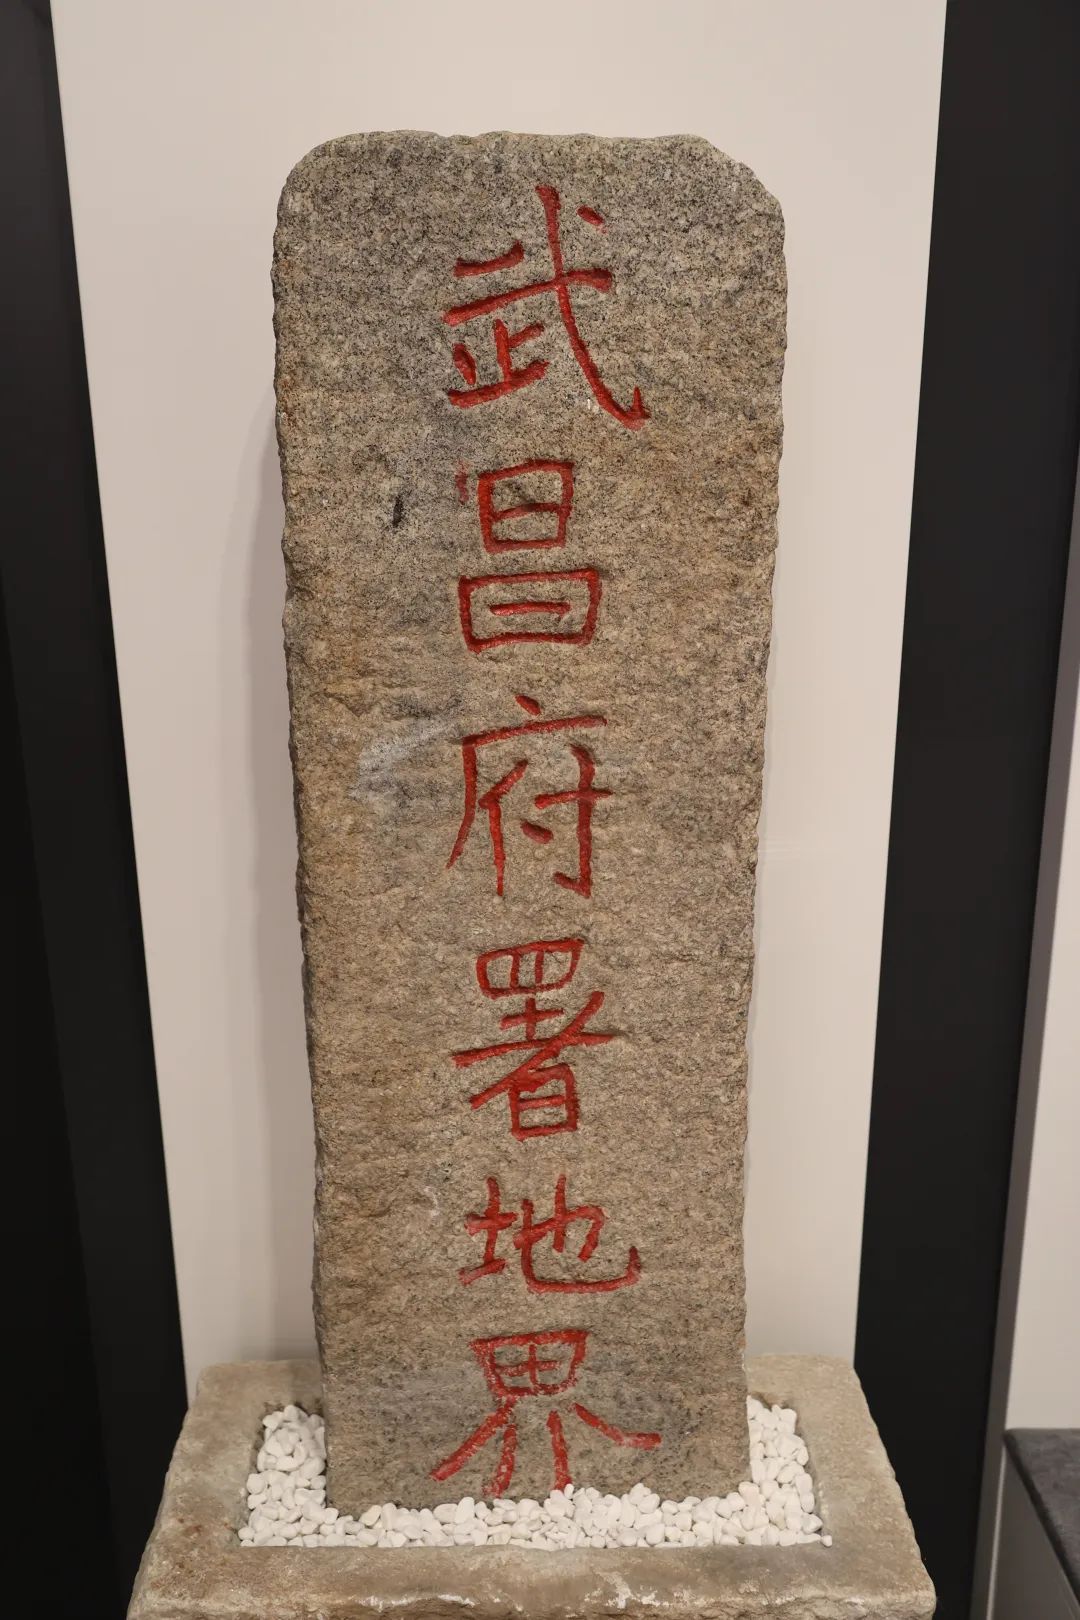 武昌府署地界